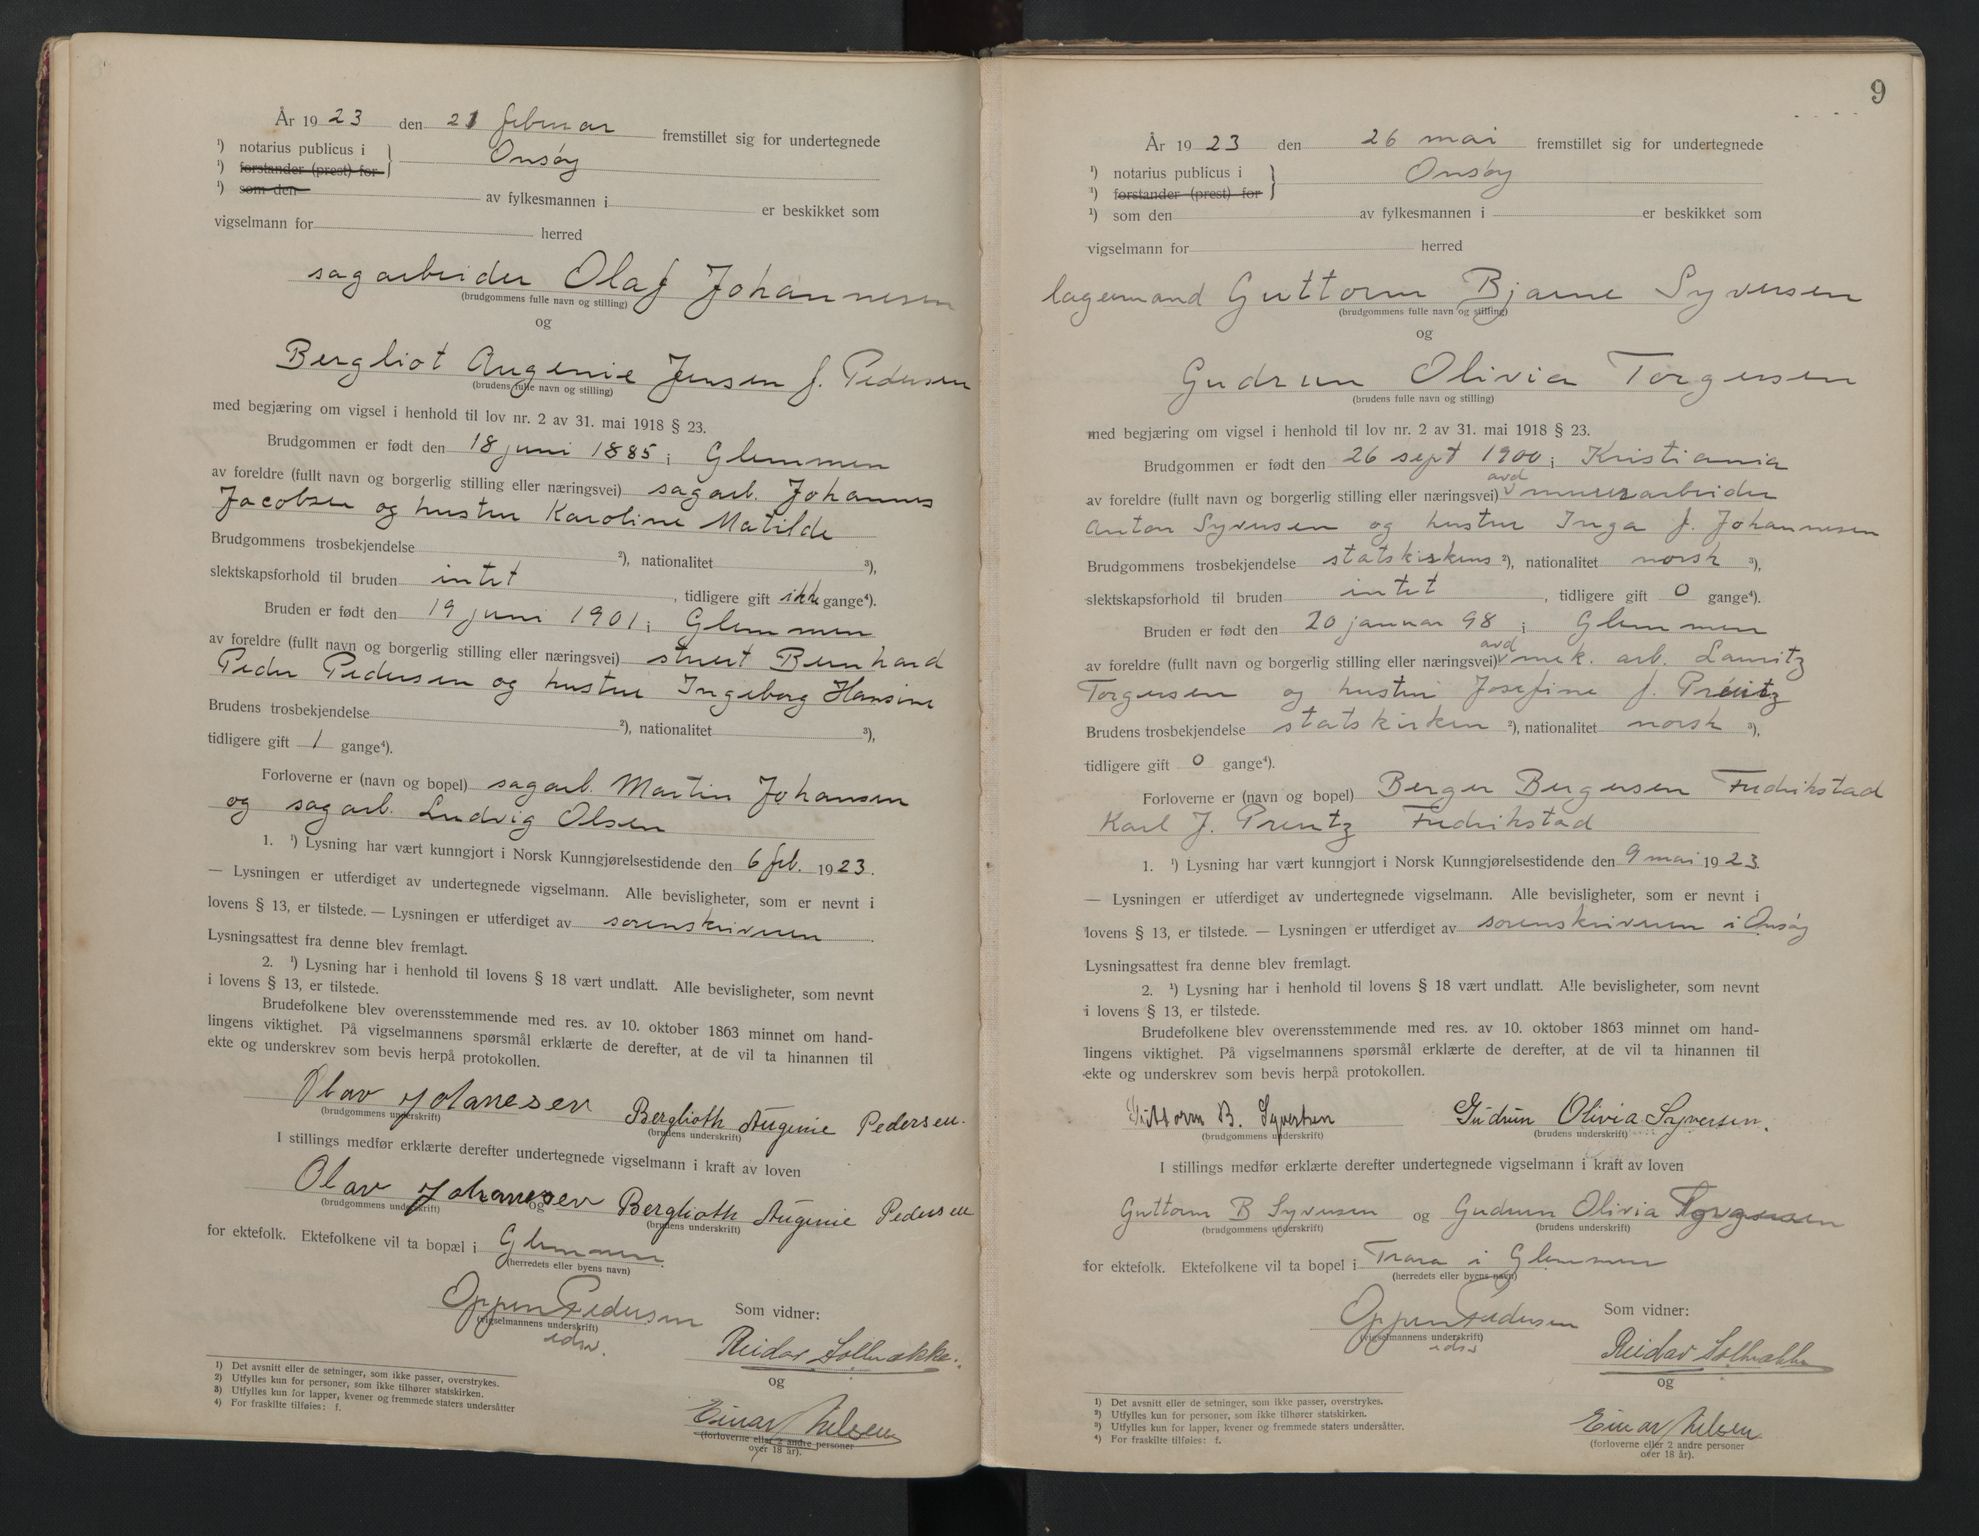 År 1923 den 21 februar fremstillet sig for undertegnede
¹) notarius publicus i Onsøy
¹) forstander (prest) for
¹) som den av fylkesmannen i er beskikket som
vigselmann for herred
sagarbeider Olaf Johannesen
(brudgommens fulle navn og stilling)
og
Bergliot Augenie Jensen f. Pedersen
(brudens fulle navn og stilling)
med begjæring om vigsel i henhold til lov nr. 2 av 31. mai 1918 § 23.
Brudgommen er født den 18 juni 1885 i Glemmen
av foreldre (fullt navn og borgerlig stilling eller næringsvei) sagarb. Johannes
Jacobsen og hustru Karoline Matilde
Brudgommens trosbekjendelse ²), nationalitet ³),
slektskapsforhold til bruden intet, tidligere gift ikke gange⁴).
Bruden er født den 19 juni 1901 i Glemmen
av foreldre (fullt navn og borgerlig stilling eller næringsvei) stuert Bernhard
Peder Pedersen og hustru Ingeborg Hansine
Brudens trosbekjendelse ²), nationalitet ³),
tidligere gift 1 gange⁴).
Forloverne er (navn og bopel) sagarb. Martin Johansen
og sagarb. Ludvig Olsen
1. ¹) Lysning har vært kunngjort i Norsk Kunngjørelsestidende den 6 feb. 1923.
— Lysningen er utferdiget av undertegnede vigselmann. Alle bevisligheter, som er nevnt i
lovens § 13, er tilstede. — Lysningen er utferdiget av sorenskriveren.
Lysningsattest fra denne blev fremlagt.
2. ¹) Lysning har i henhold til lovens § 18 vært undlatt. Alle bevisligheter, som nevnt
i lovens § 13, er tilstede.
Brudefolkene blev overensstemmende med res. av 10. oktober 1863 minnet om hand-
lingens viktighet. På vigselmannens spørsmål erklærte de derefter, at de vil ta hinannen til
ekte og underskrev som bevis herpå protokollen.
Olav Johanesen Berglioth Augenie Pedersen.
(brudgommens underskrift) (brudens underskrift)
I stillings medfør erklærte derefter undertegnede vigselmann i kraft av loven
Olav Johanesen og Berglioth Augenie Pedersen
(brudgommens underskrift) (brudens underskrift)
for ektefolk. Ektefolkene vil ta bopæl i Glemmen.
(herredets eller byens navn)
Oppen Pedersen Som vidner:
(vigselmannens underskrift)
edsv. Reidar Solbrække.
og
Einar Nielsen
(forloverne eller 2 andre personer
over 18 år).
1) Det avsnitt eller de setninger, som ikke passer, overstrykes.
2) Utfylles kun for personer, som ikke tilhører statskirken.
3) Utfylles kun for lapper, kvener og fremmede staters undersåtter
4) For fraskilte tilføies: f.
9
År 1923 den 26 mai fremstillet sig for undertegnede
¹) notarius publicus i Onsøy
¹) forstander (prest) for
¹) som den av fylkesmannen i er beskikket som
vigselmann for herred
lagermand Guttorm Bjarne Syversen
(brudgommens fulle navn og stilling)
og
Gudrun Olivia Torgersen
(brudens fulle navn og stilling)
med begjæring om vigsel i henhold til lov nr. 2 av 31. mai 1918 § 23.
Brudgommen er født den 26 sept 1900 i Kristiania
av foreldre (fullt navn og borgerlig stilling eller næringsvei) avd murerarbeider
Anton Syversen og hustru Inga f. Johannesen
Brudgommens trosbekjendelse statskirkens ²), nationalitet norsk ³),
slektskapsforhold til bruden intet, tidligere gift 0 gange⁴).
Bruden er født den 20 januar 98 i Glemmen
av foreldre (fullt navn og borgerlig stilling eller næringsvei) avd mek. arb. Lauritz
Torgersen og hustru Josefine f. Preutz
Brudens trosbekjendelse statskirken ²), nationalitet norsk ³),
tidligere gift 0 gange⁴).
Forloverne er (navn og bopel) Berger Bergersen Fredrikstad
Karl J. Preutz Fredrikstad
1. ¹) Lysning har vært kunngjort i Norsk Kunngjørelsestidende den 9 mai 1923.
— Lysningen er utferdiget av undertegnede vigselmann. Alle bevisligheter, som er nevnt i
lovens § 13, er tilstede. — Lysningen er utferdiget av sorenskriveren i Onsøy
Lysningsattest fra denne blev fremlagt.
2. ¹) Lysning har i henhold til lovens § 18 vært undlatt. Alle bevisligheter, som nevnt
i lovens § 13, er tilstede.
Brudefolkene blev overensstemmende med res. av 10. oktober 1863 minnet om hand-
lingens viktighet. På vigselmannens spørsmål erklærte de derefter, at de vil ta hinannen til
ekte og underskrev som bevis herpå protokollen.
Guttorm B. Syversen Gudrun Olivia Syversen.
(brudgommens underskrift) (brudens underskrift)
I stillings medfør erklærte derefter undertegnede vigselmann i kraft av loven
Guttorm B Syversen og Gudrun Olivia Torgersen
(brudgommens underskrift) (brudens underskrift)
for ektefolk. Ektefolkene vil ta bopel i Trara i Glemmen
(herredets eller byens navn)
Oppen Pedersen Som vidner:
(vigselmannens underskrift)
edsv Reidar Solbrække
og
Einar Nielsen
(forloverne eller 2 andre personer
over 18 år).
1) Det avsnitt eller de setninger, som ikke passer, overstrykes.
2) Utfylles kun for personer, som ikke tilhører statskirken.
3) Utfylles kun for lapper, kvener og fremmede staters undersåtter.
4) For fraskilte tilføies: f.